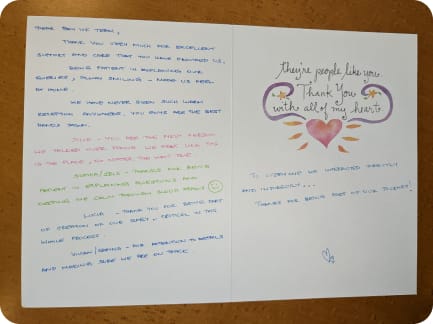 DEAR BON IVF TEAM,
THANK YOU VERY MUCH FOR EXCELLENT
SUPPORT AND CARE THAT YOU HAVE PROVIDED US.
BEING PATIENT IN EXPLAINING OUR
QUERIES, ALWAYS SMILING - MADE US FEEL
AT HOME.
WE HAVE NEVER SEEN SUCH WARM
RECEPTION ANYWHERE, YOU GUYS ARE THE BEST
HANDS DOWN.
- YOU ARE THE FIRST PERSON
WE TALKED OVER PHONE. WE FEEL LIKE THIS
IS THE PLACE, NO MATTER THE WAIT TIME.
- THANKS FOR BEING
PATIENT IN EXPLAINING QUESTIONS AND
KEEPING US CALM THROUGH BLOOD DRAW
LUCIA - THANK YOU FOR BEING PART
OF CREATION OF OUR BABY - CRITICAL IN THIS
WHOLE PROCESS.
- FOR ATTENTION TO DETAILS
AND MAKING SURE WE ARE ON TRACK
they're people like you.
Thank You
with all of my heart.
TO EVERYONE WE INTERACTED DIRECTLY
AND INDIRECTLY...
THANKS FOR BEING PART OF OUR JOURNEY!